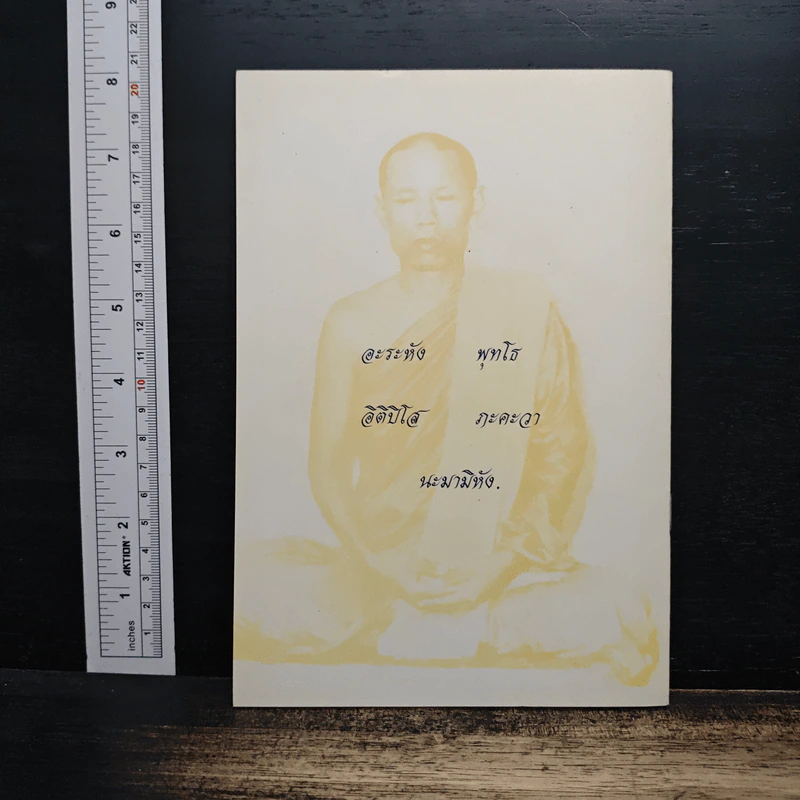 อะระหัง พุทโธ
อิติปิโส ภะคะวา
นะมามิหัง.
9
8
7
6
5
4
3
2
1
inches
AKTION®
22
21
20
19
18
17
16
15
14
13
12
11
10
9
8
7
6
5
4
3
2
1